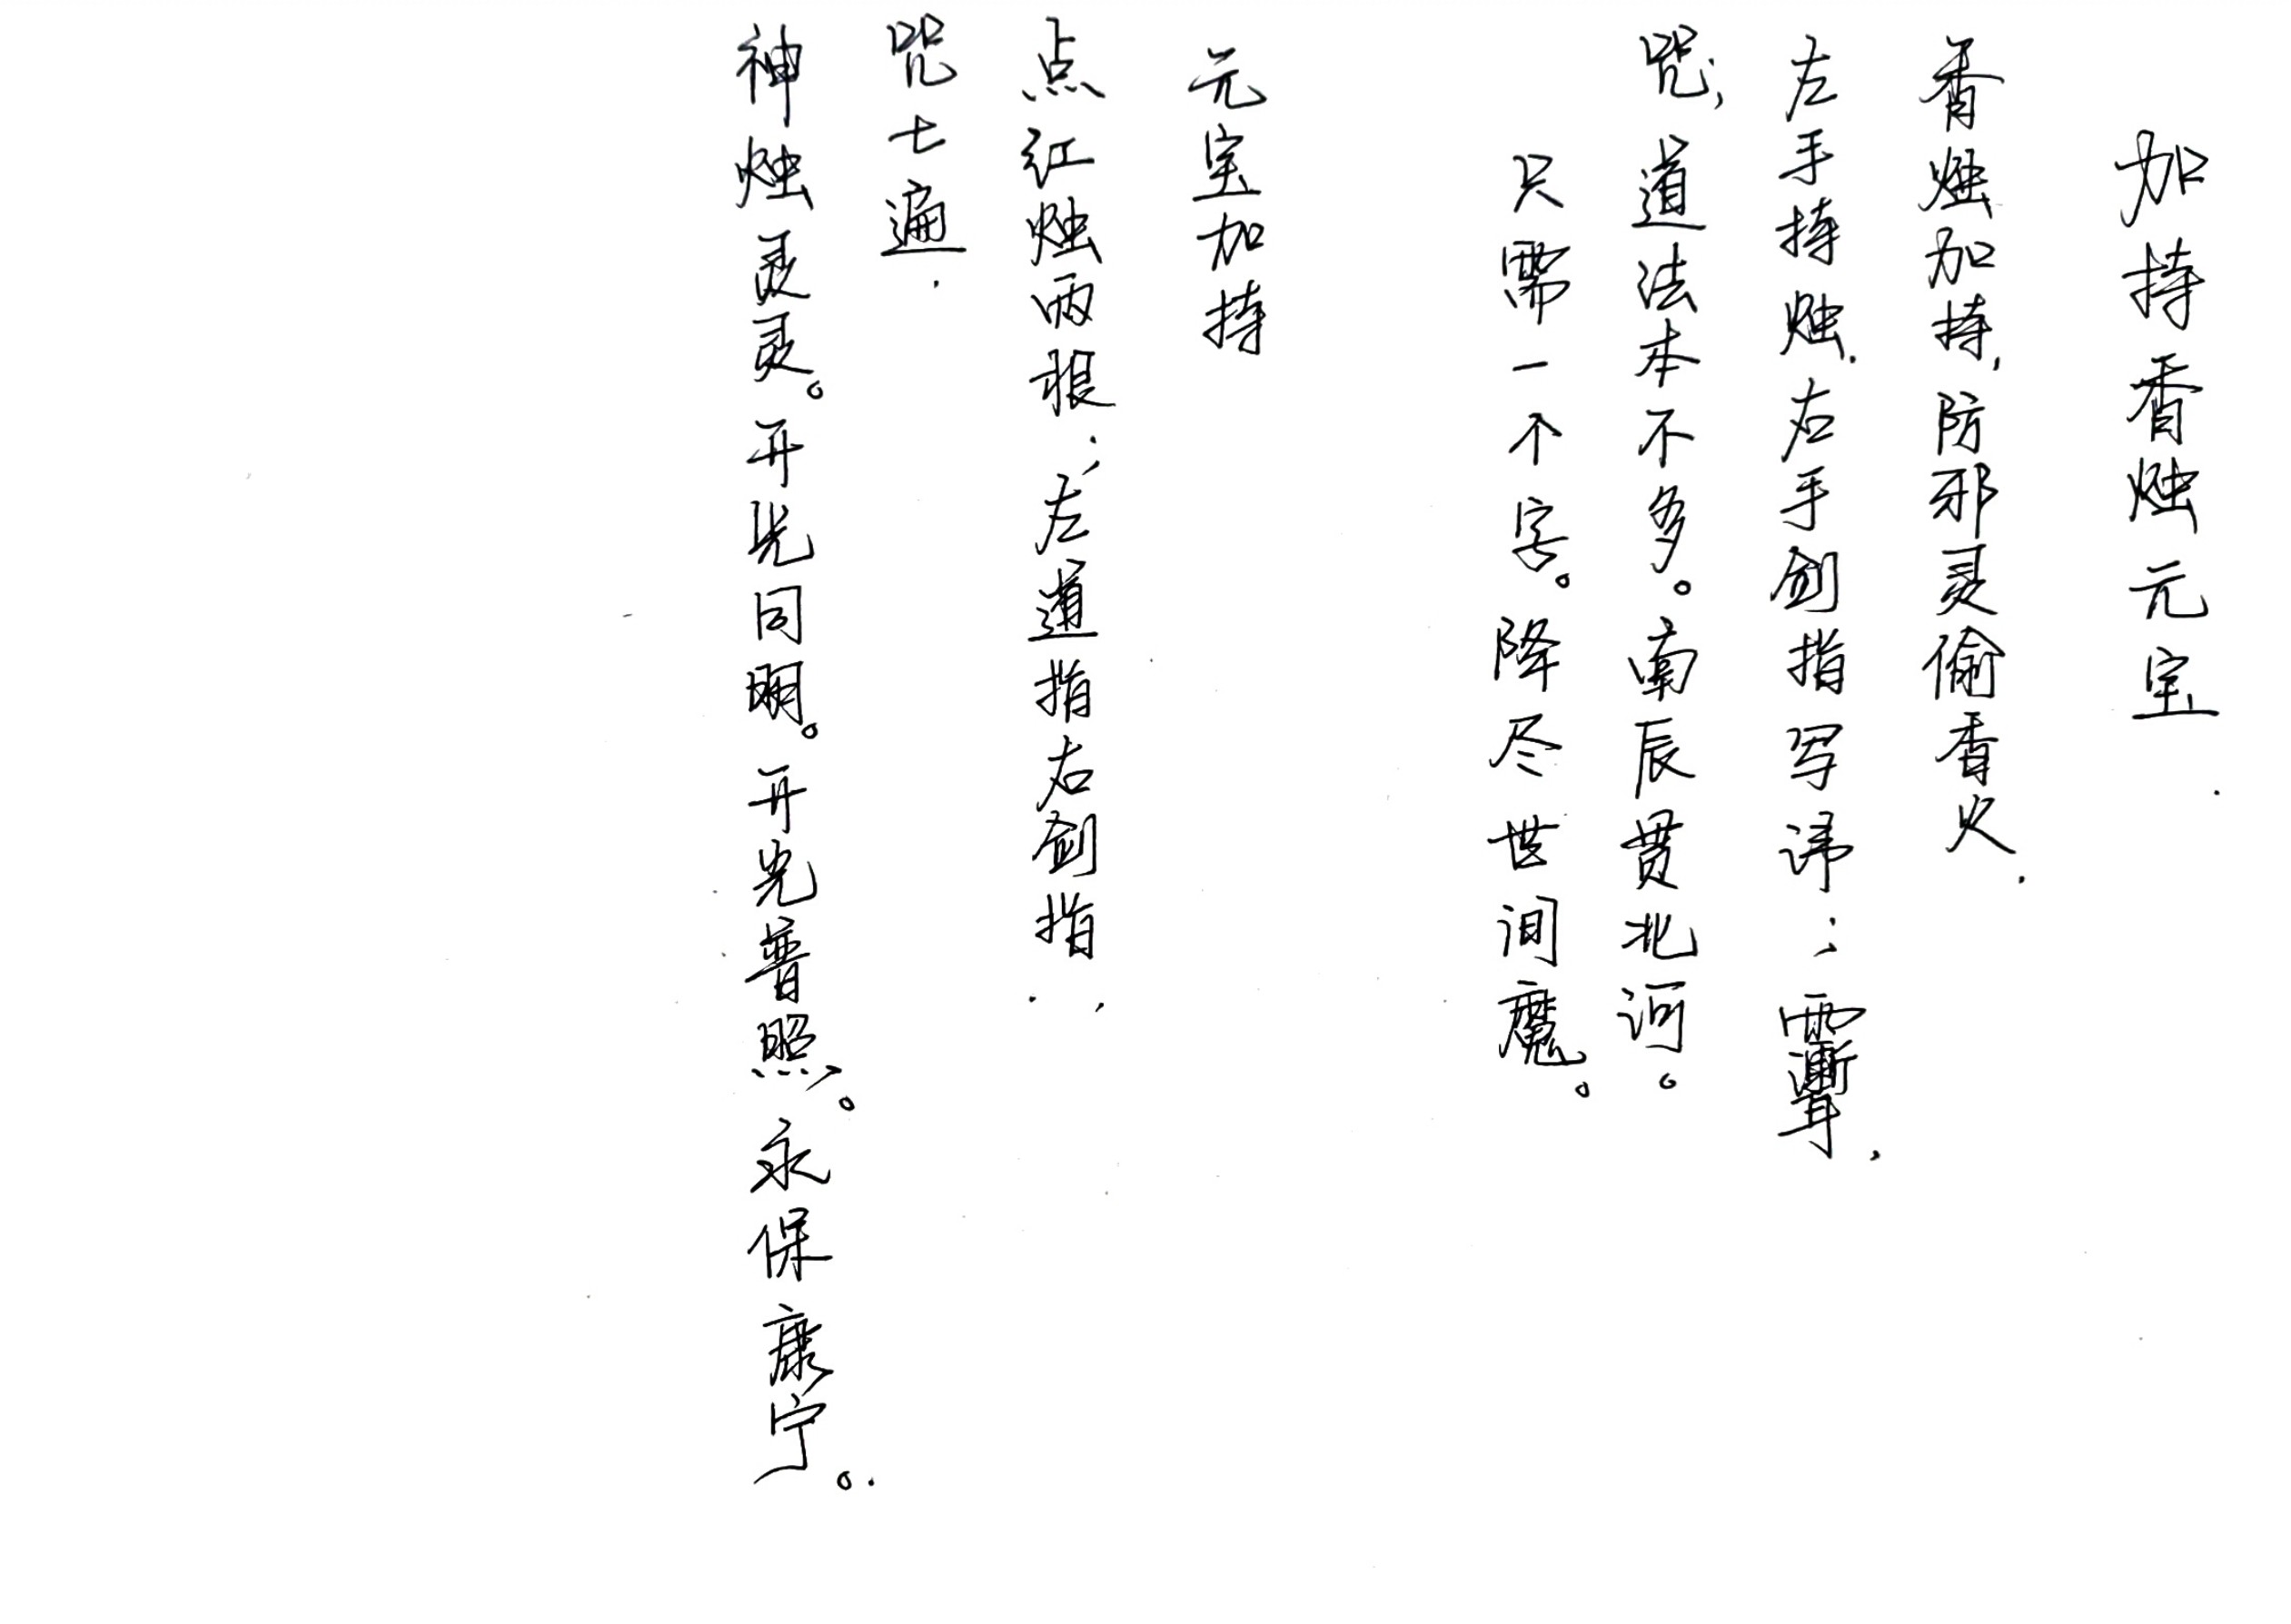 加持香烛元宝.
香烛加持,防邪灵偷香火.
左手持烛.右手剑指写讳:
咒;道法本不多。南辰贯北河。
只需一个字。降尽世间魔。
元宝加持
点红烛两根;左道指右剑指.
咒七遍.
神烛灵灵。开光同明。开光普照。永保康宁。